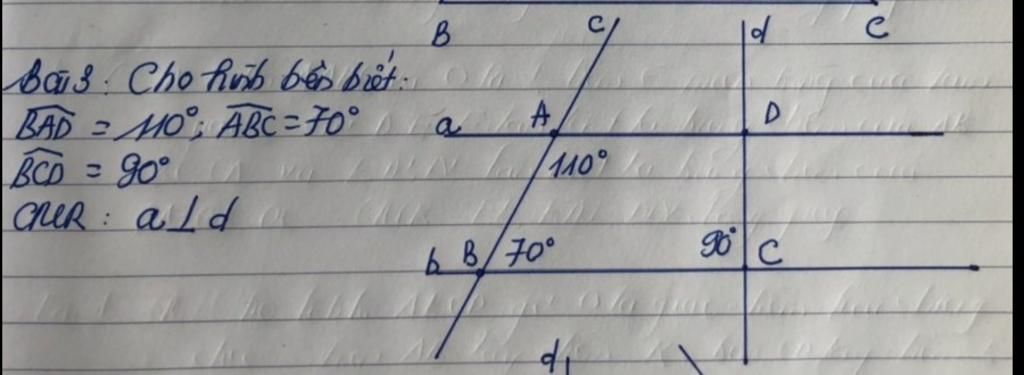 B C
Bài 3: Cho hình bên biết:
BAD = 110°; ABC = 70°
BCD = 90°
CMR: a ⊥ d
c d
a A D
110°
b B 70° 90° C
d